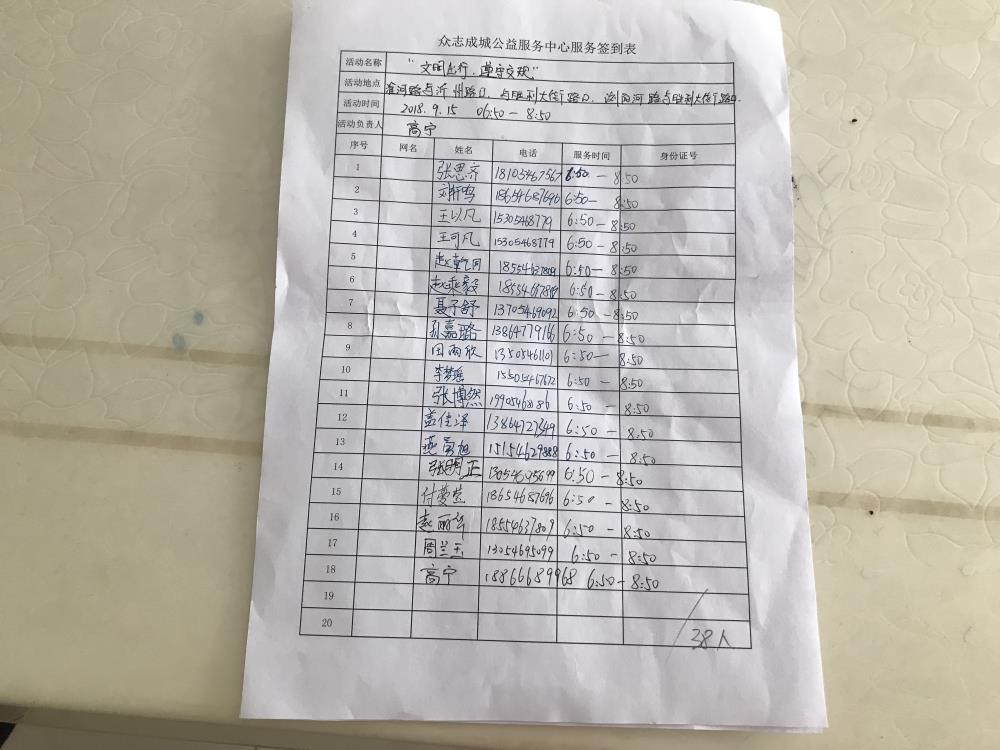 众志成城公益服务中心服务签到表
活动名称 "文明出行、遵守交规"
活动地点 淮河路与沂州路口、与胜利大街路口、浏阳河路与胜利大街路口.
活动时间 2018.9.15 06:50-8:50
活动负责人 高宁
序号 网名 姓名 电话 服务时间 身份证号
1 张思齐 18105467567 6:50-8:50
2 刘轩鸣 18654687696 6:50-8:50
3 王以凡 15305468779 6:50-8:50
4 王可凡 15305468779 6:50-8:50
5 18554637809 6:50-8:50
6 赵乘毅 18554637809 6:50-8:50
7 聂子舒 13705469092 6:50-8:50
8 孙嘉璐 13864777916 6:50-8:50
9 田雨欣 13505461101 6:50-8:50
10 李梦瑶 15505467672 6:50-8:50
11 张博然 6:50-8:50
12 盖佳泽 13864727349 6:50-8:50
13 燕勇旭 15154629888 6:50-8:50
14 张明正 13054695699 6:50-8:50
15 付蔓莹 18654687696 6:50-8:50
16 赵丽华 18554637809 6:50-8:50
17 周兰玉 13054695099 6:50-8:50
18 高宁 18866689968 6:50-8:50
19
20
38人